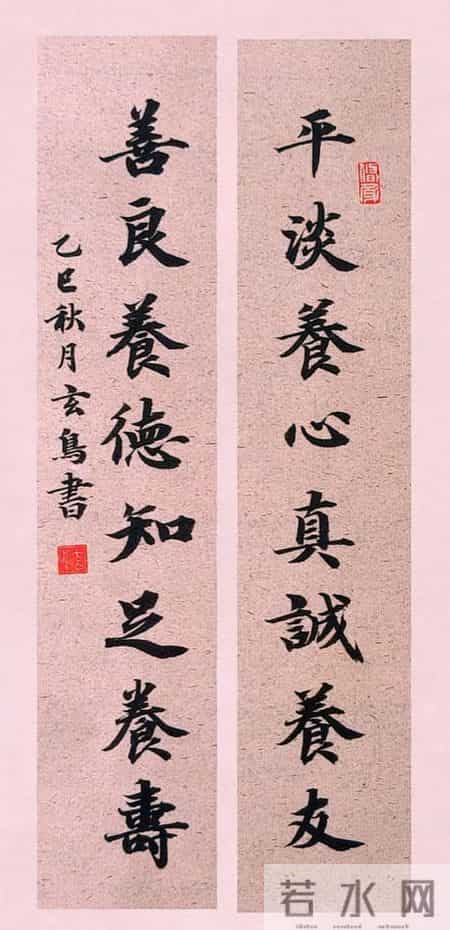 平淡養心真誠養友
善良養德知足養壽
乙巳秋月玄鳥書
若水网